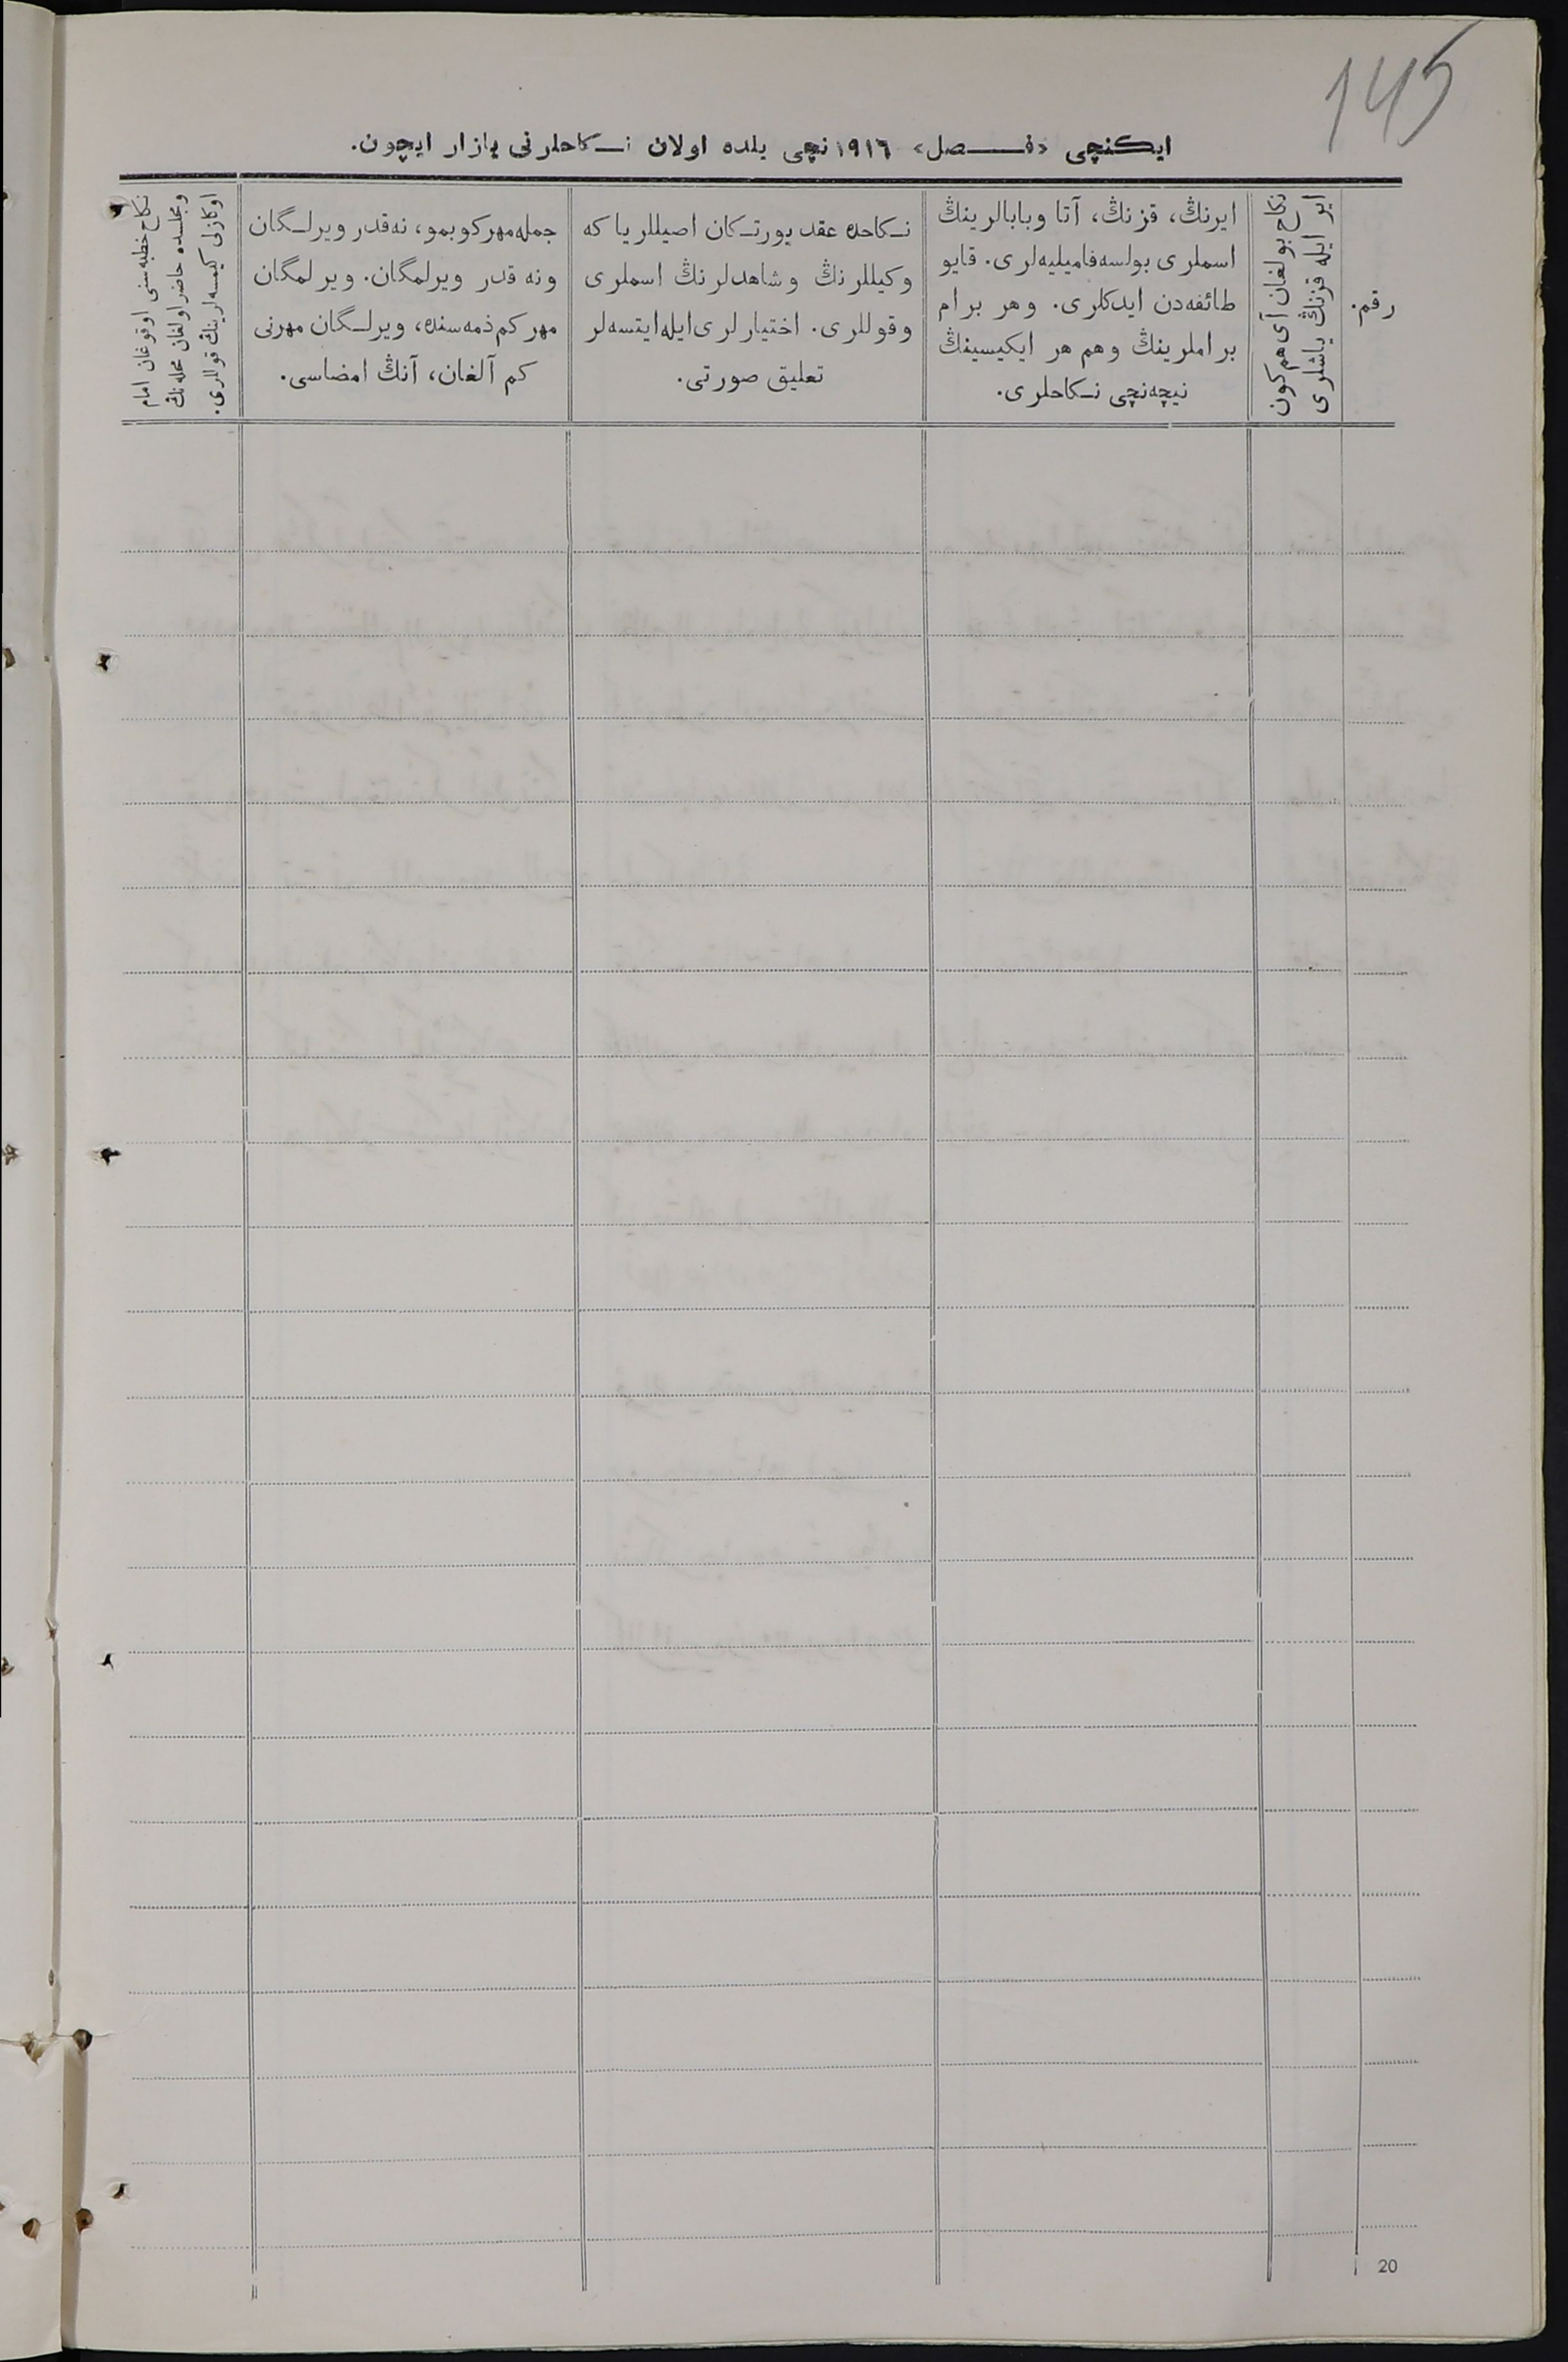 145
ایکنچی «فصل» ۱۹۱٦ نچی یلده اولان نكاحلرنی یازار ایچون.
رقم.
نكاح بولغان آی هم كون
ایر ایله قزنڭ یاشلری
ایرنڭ، قزنڭ، آتا وبابالرینڭ
اسملری بولسه فامیلیه‌لری. قایو
طائفه‌دن ایدكلری. وهر برام
براملرینڭ وهم هر ایكیسینڭ
نیچه‌نچی نكاحلری.
نكاحده عقد یورتكان اصیللر یا كه
وكیللرنڭ وشاهدلرنڭ اسملری
وقوللری. اختیارلری ایله ایتسه‌لر
تعلیق صورتی.
جمله مهر كوبمو، نه‌قدر ویرلگان
ونه قدر ویرلمگان. ویرلمگان
مهر كم ذمه‌سنده، ویرلگان مهرنی
كم آلغان، آنڭ امضاسی.
نكاح خطبه‌سنی اوقوغان امام
ومجلسده حاضر اولغان محله‌نڭ
اوكازنی كیمسه‌لرینڭ قوللری.
20